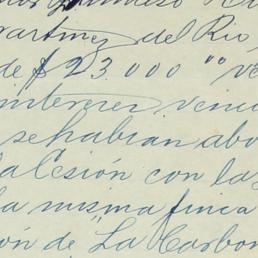 artinez del Rio,
de $23.000 "" ve
interes, venci
se habian abo
la cesión con las
la misma finca
ón de La Carbon